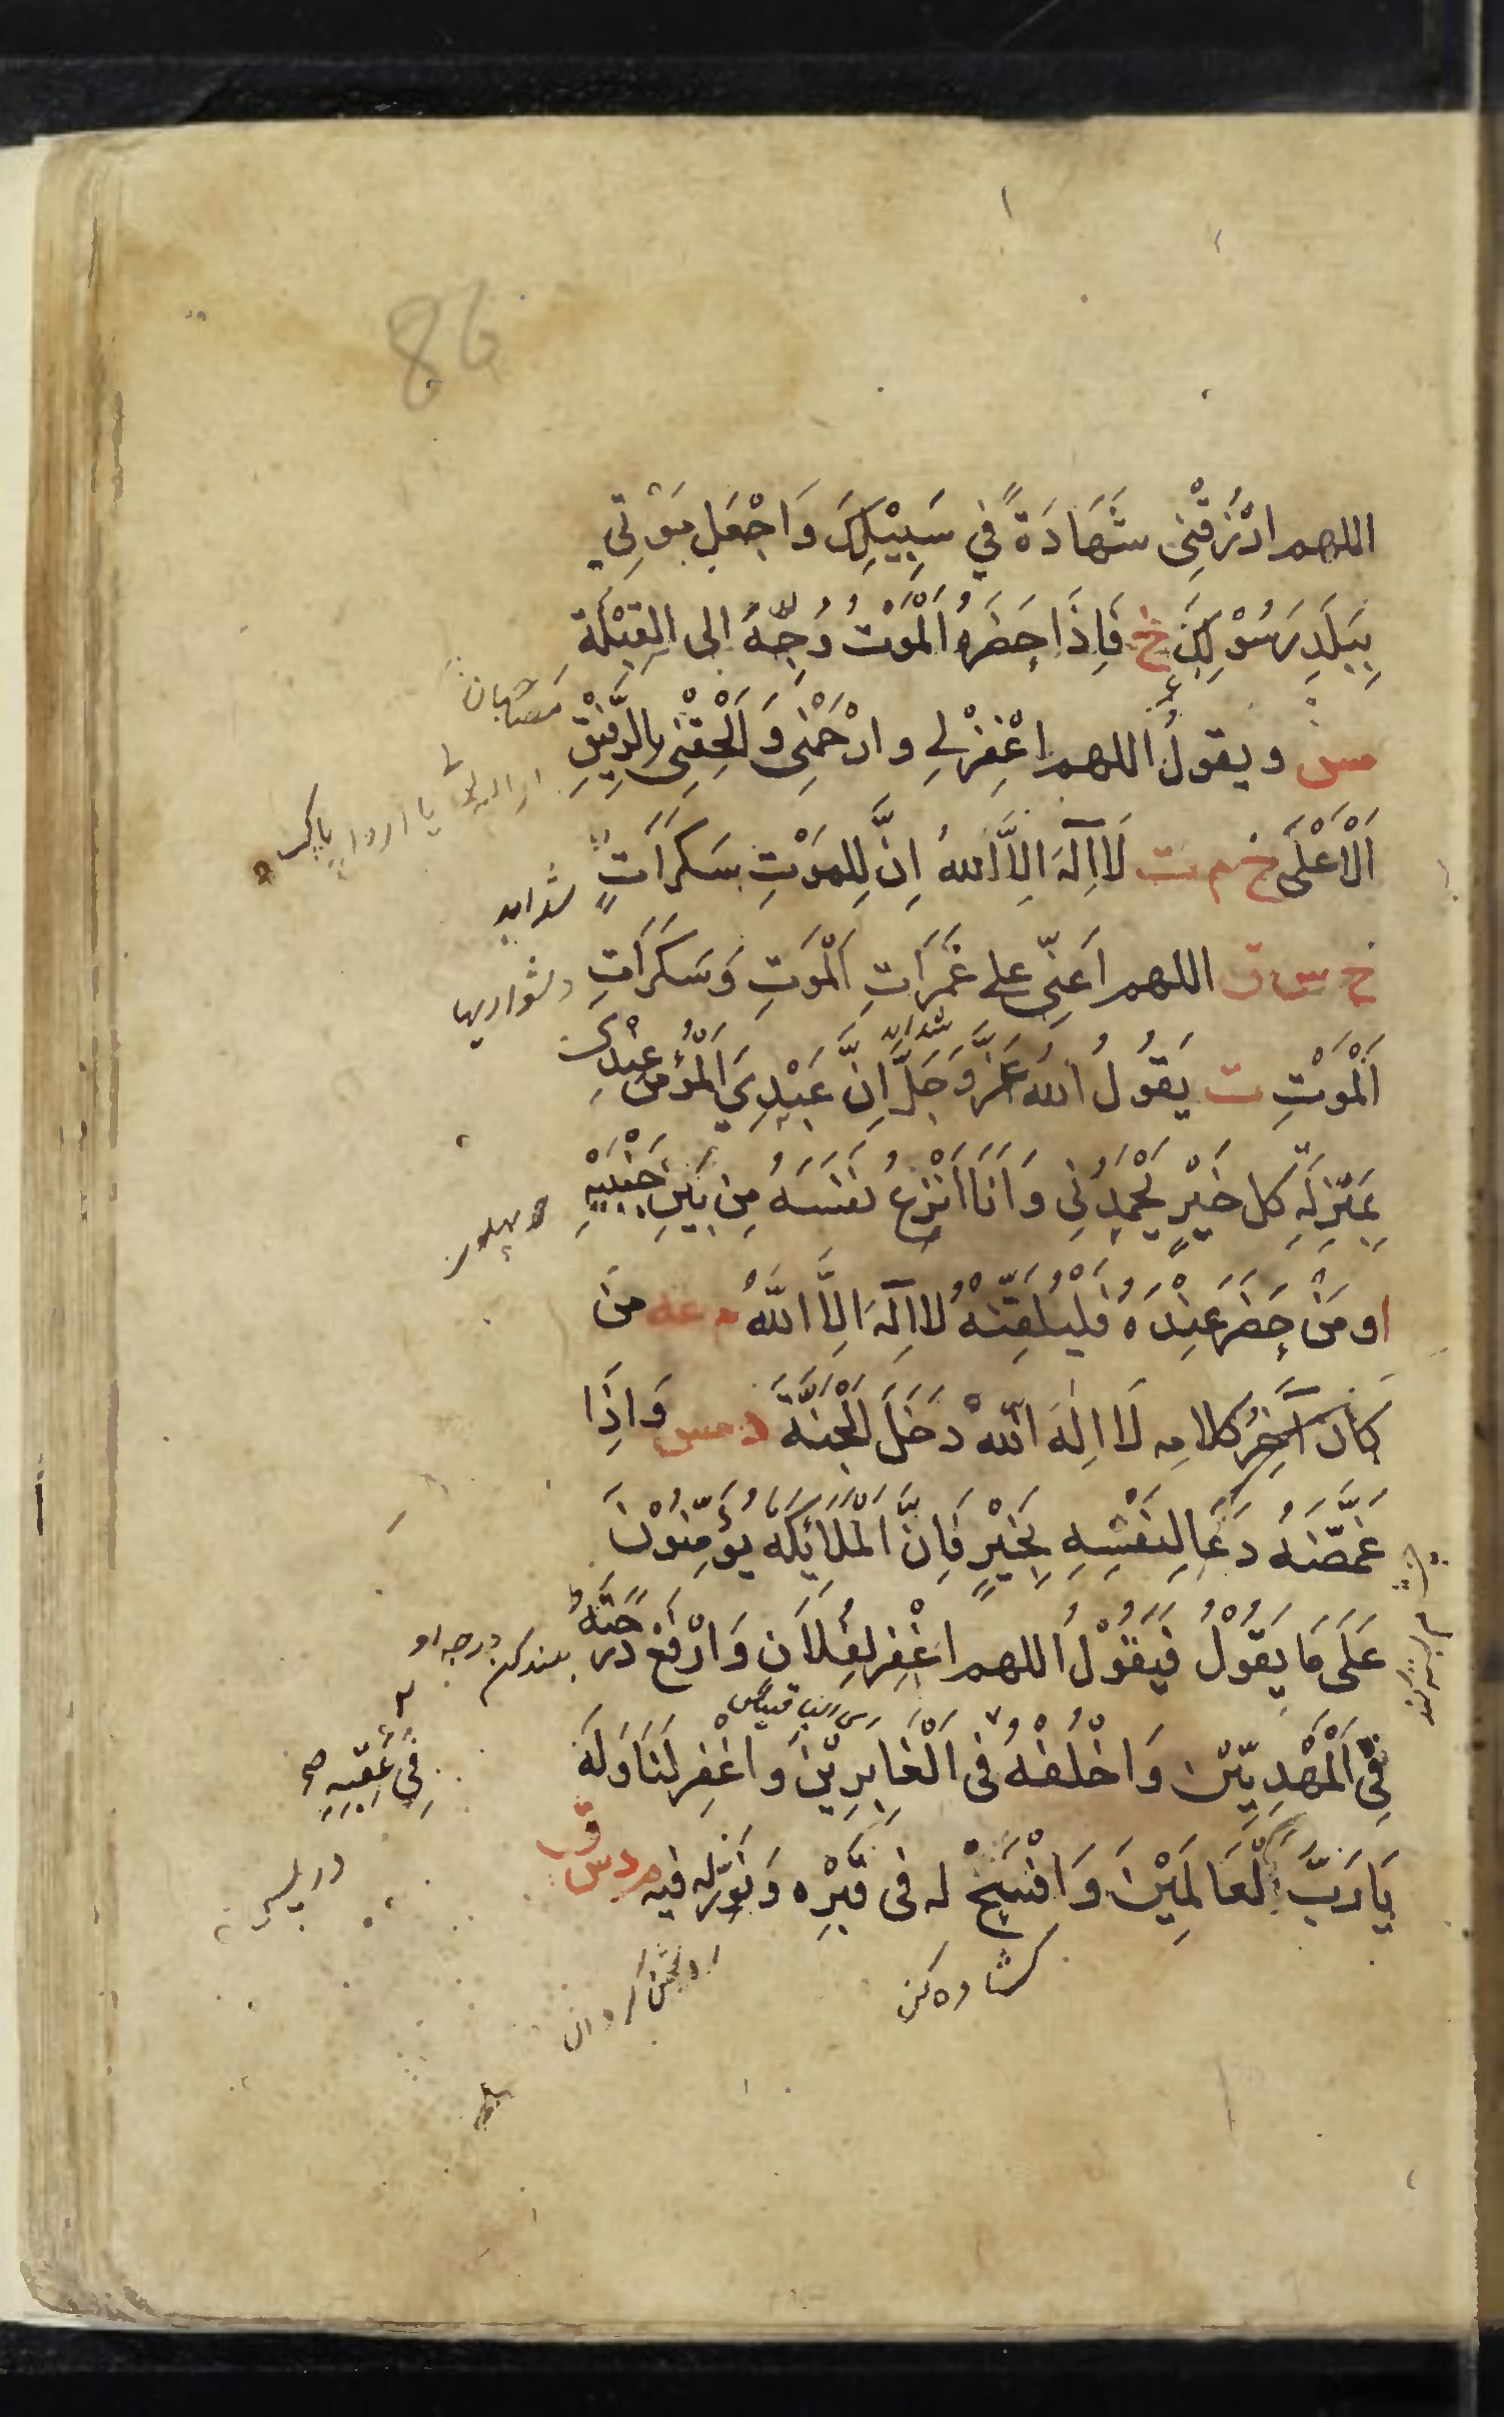 86
اللهم ارْزُقْنِی شَهَادَةً فِي سَبِيْلِكَ وَاجْعَلْ مَوْتِي
بِبَلَدِ رَسُوْلِكَ خ فَاِذَا حَضَرَهُ الْمَوْتُ وُجِّهَ اِلی الْقِبْلَةِ
مس ويقولُ اللهم اغْفِرْلِي وارْحَمْنِی وَاَلْحِقْنِی بِالرَّفِيْقِ
الْاَعْلَی خ م ت لَا اِلٰهَ اِلَّا اللهُ اِنَّ لِلْمَوْتِ سَكَرَاتٍ
شدايد
خ س ق اللهم اَعِنِّی علی غَمَرَاتِ الْمَوْتِ وَسَكَرَاتِ
دشواريها
شدايد
الْمَوْتِ ت يَقُوْلُ اللهُ عَزَّ وَجَلَّ اِنَّ عَبْدِيَ الْمُؤْمِنَ عِنْدِی
بِمَنْزِلَةِ كل خَيْرٍ يَحْمَدُنِی وَاَنَا اَنْزِعُ نَفْسَهُ مِنْ بَيْنِ جَنْبَيْهِ
او مَنْ حَضَرَ عِنْدَهُ فَلْيُلَقِّنْهُ لا اِلٰهَ اِلَّا اللّٰهُ م عه من
كَانَ آخِرُ كلامِه لَا اِلٰهَ اللّٰهُ دَخَلَ الْجَنَّةَ د مس وَاِذَا
غَمَّضَهُ دَعَا لِنَفْسِهِ بِخَيْرٍ فَاِنَّ الْمَلَائِكَةَ يُؤَمِّنُوْنَ
عَلَی مَا يَقُوْلُ فَيَقُوْلُ اللهم اغْفِرْ لِفُلَانٍ وَارْفَعْ دَرَجَتَهُ
بلندكن درجه او
فِی الْمَهْدِيِّيْنَ وَاخْلُفْهُ فی الْغَابِرِيْنَ وَاغْفِرْ لَنَا وَلَهُ
فِی عَقِبِهِ
يَا رَبَّ الْعَالَمِيْنَ وَافْسَحْ له فی قَبْرِه وَنَوِّرْ له فيه م د س ق
كشاده كن